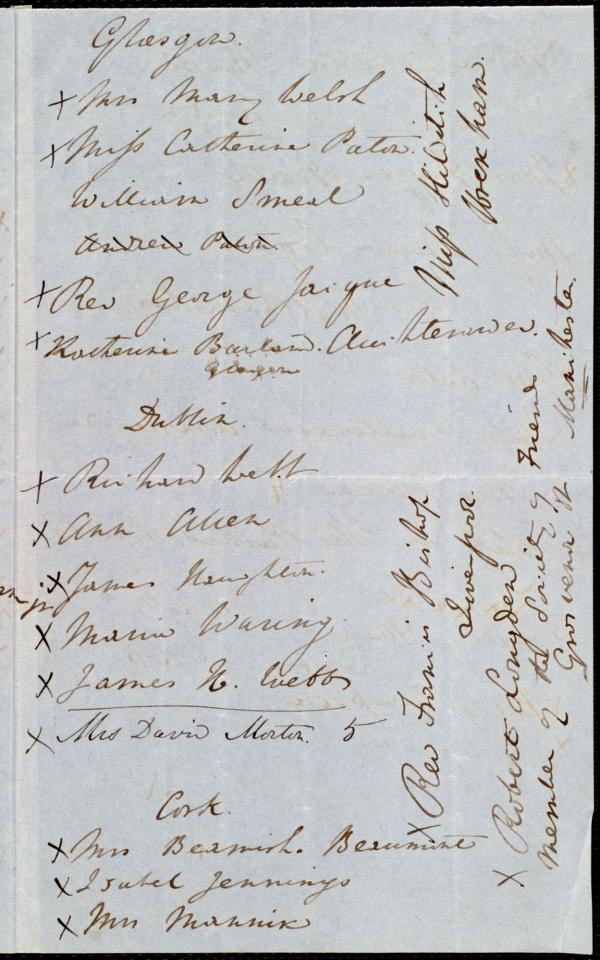 Glasgow.
x Mrs Mary Welsh
x Miss Catherine Paton.
William Smeal
Andrew Paton.
x Rev George Jaique
x Katherine Barland. Auchterarder.
Glasgow
Dublin.
x Richard Webb
x Ann Allen
x James Haughton.
x Maria Waring.
x James H. Webb
x Mrs David Morton. 5
Cork.
x Mrs Beamish. Beaumont
x Isabel Jennings
x Mrs Mannix
Miss Hilditch
Wrexham.
x Rev Francis Bishop
Liverpool.
x Robert Longden
Member of the Society of Friends
Grosvenor St Manchester.
jr.